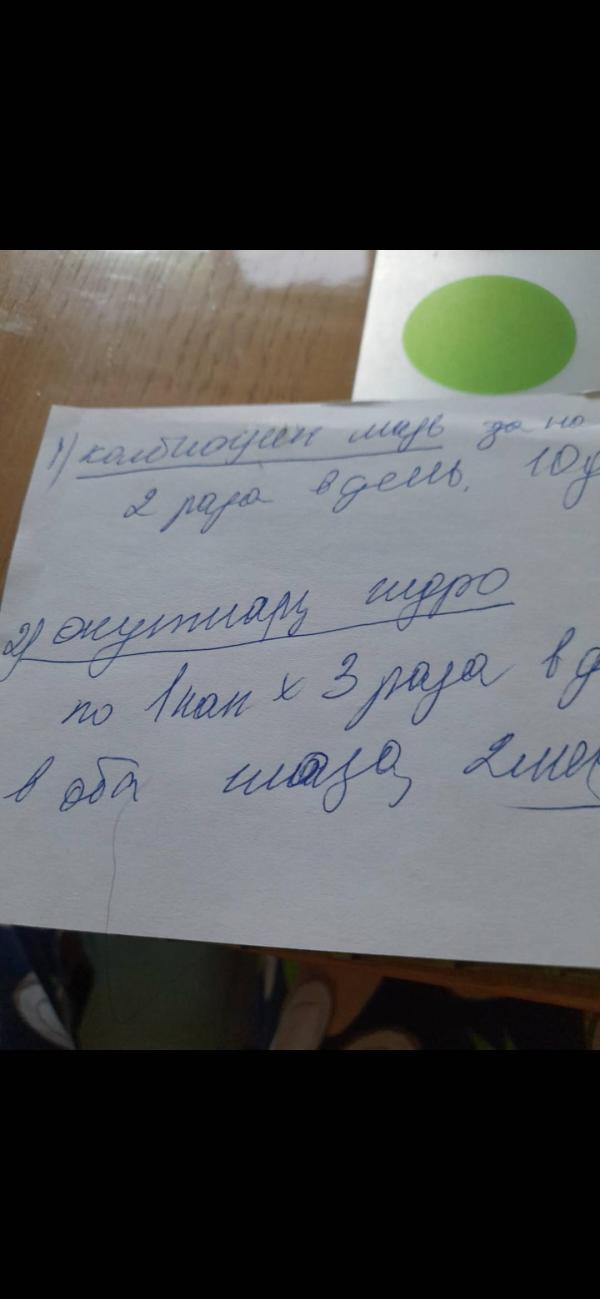 1) колбиоцин мазь за но
2 раза в день, 10д
2) окутиарз гидро
по 1 кап х 3 раза в д
в оба глаза, 2 мес